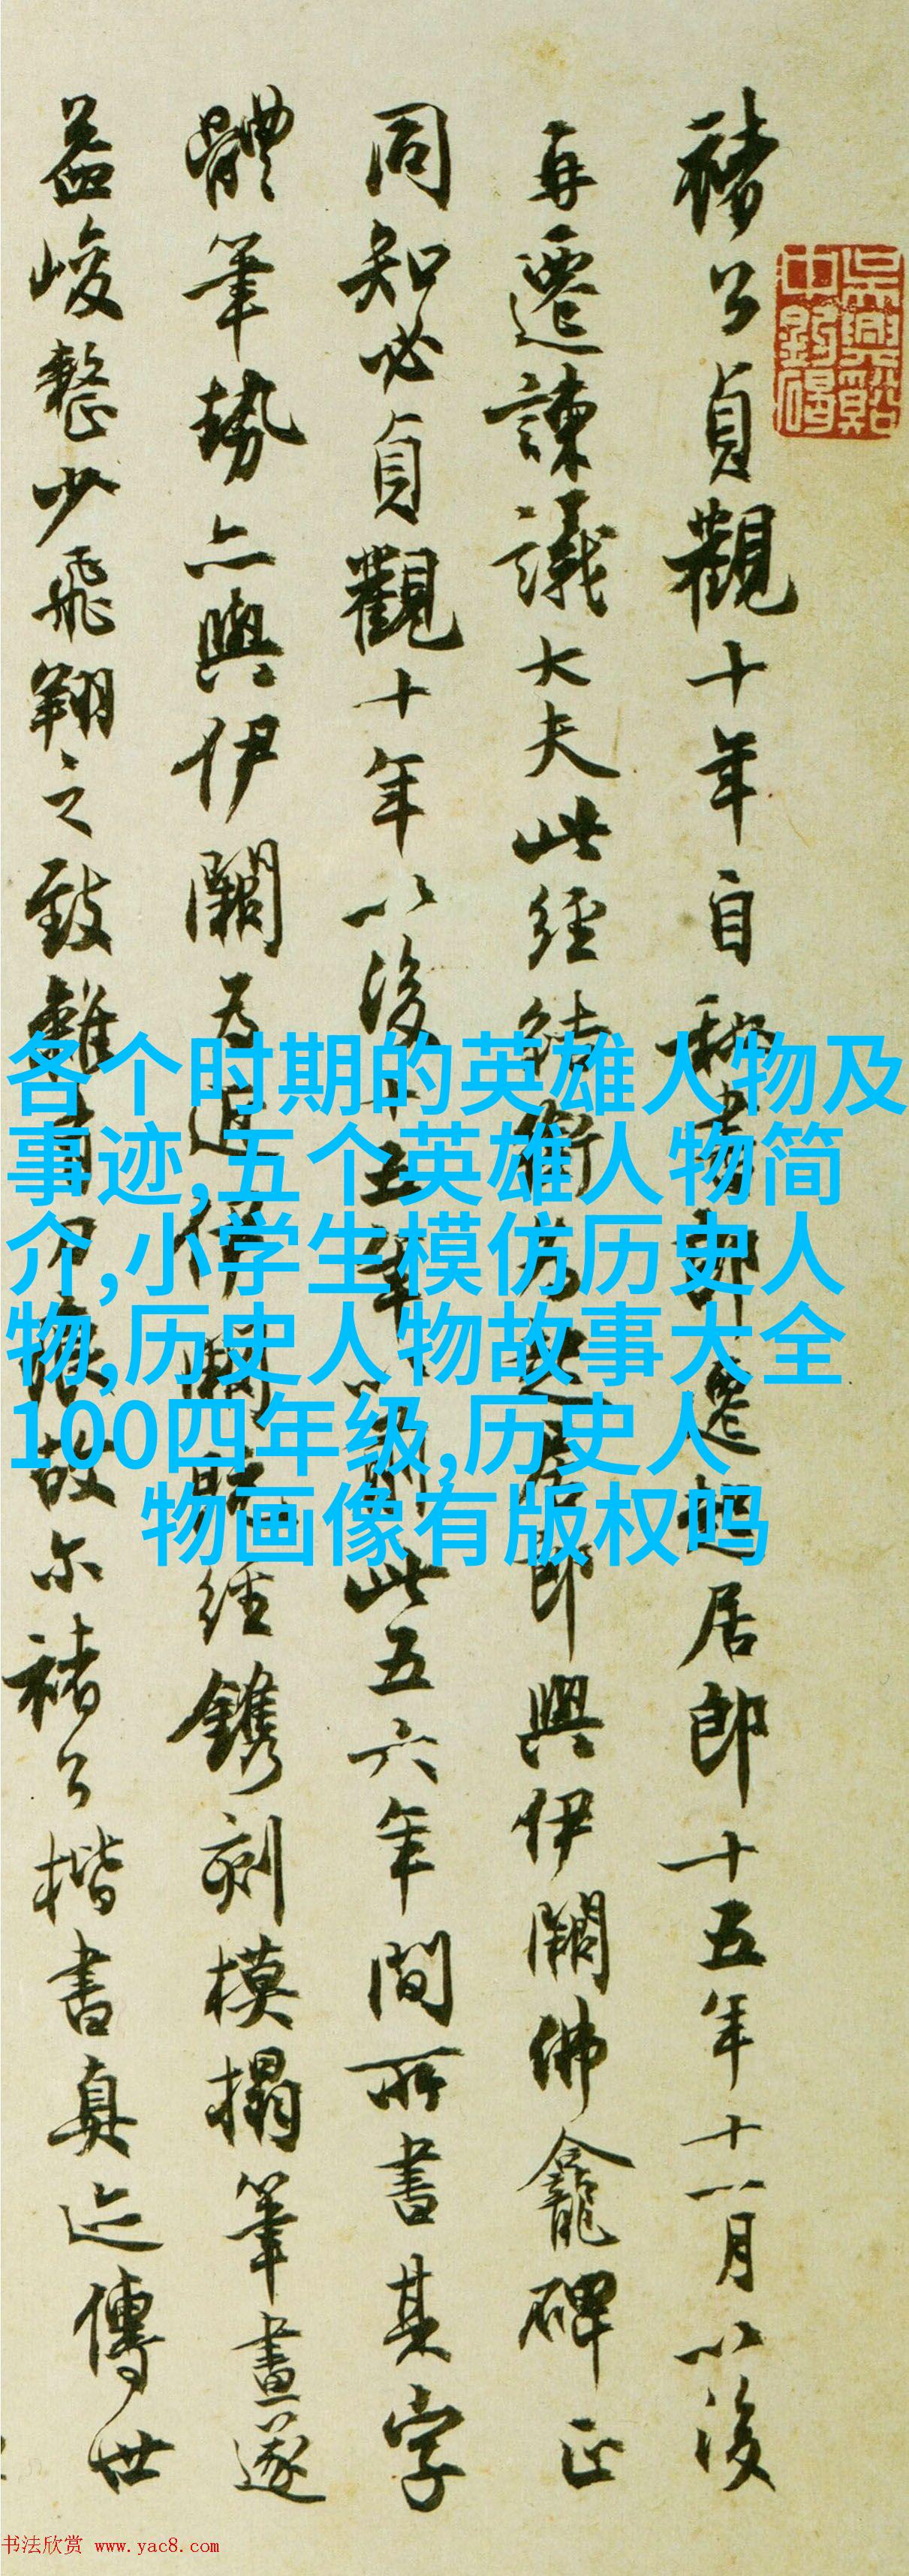 褚公貞觀十年自秘書郎遷起居郎十五年十一月以後
再遷諫議大夫此經結銜起居郎與伊闕佛龕碑正
同知必貞觀十年以後十五年以前此五六年間所書其字
體筆勢亦與伊闕為近伊闕既經鐫刻模搨筆畫遂
益峻整少飛翔之致故尔褚公楷書真迹傳世
各个时期的英雄人物及
事迹,五个英雄人物简
介,小学生模仿历史人
物,历史人物故事大全
100四年级,历史人
物画像有版权吗
书法欣赏 www.yac8.com